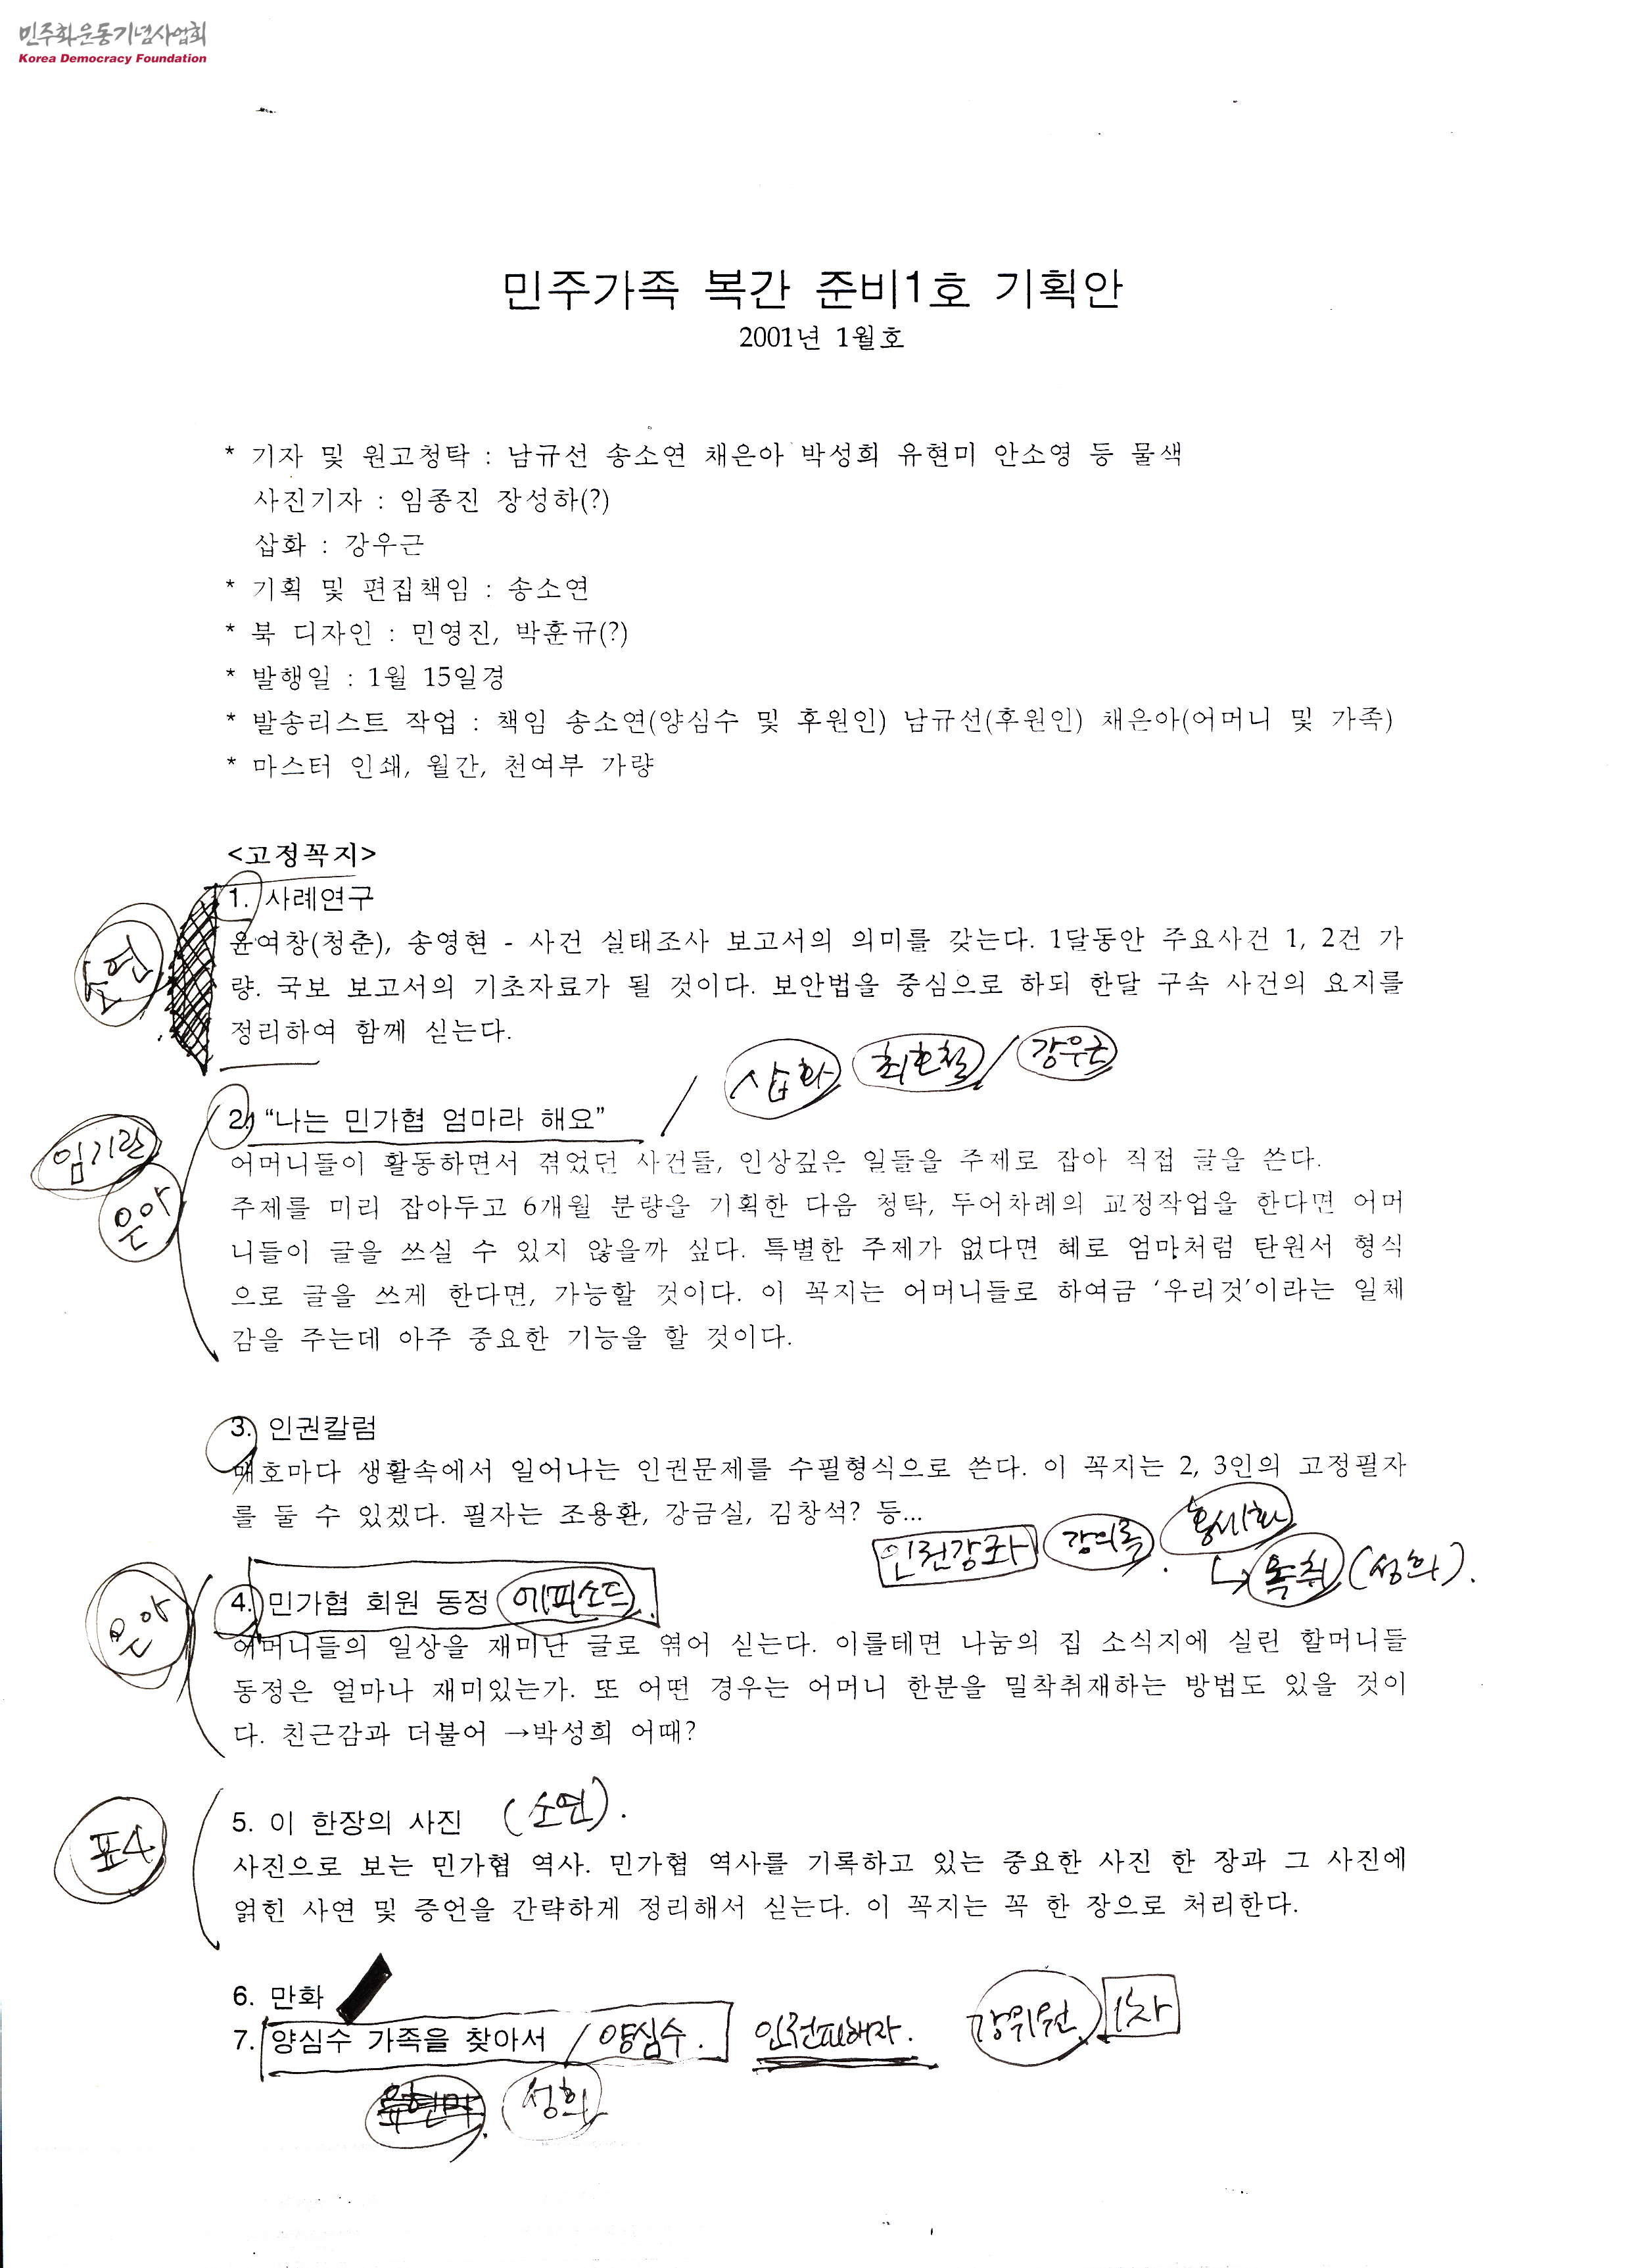 민주화운동기념사업회
Korea Democracy Foundation
민주가족 복간 준비1호 기획안
2001년 1월호
* 기자 및 원고청탁 : 남규선 송소연 채은아 박성희 유현미 안소영 등 물색
사진기자 : 임종진 장성하(?)
삽화 : 강우근
* 기획 및 편집책임 : 송소연
* 북 디자인 : 민영진, 박훈규(?)
* 발행일 : 1월 15일경
* 발송리스트 작업 : 책임 송소연(양심수 및 후원인) 남규선(후원인) 채은아(어머니 및 가족)
* 마스터 인쇄, 월간, 천여부 가량
<고정꼭지>
1. 사례연구
소연
윤여창(청춘), 송영현 - 사건 실태조사 보고서의 의미를 갖는다. 1달동안 주요사건 1, 2건 가
량. 국보 보고서의 기초자료가 될 것이다. 보안법을 중심으로 하되 한달 구속 사건의 요지를
정리하여 함께 싣는다.
삽화 최호철 / 강우근
2. “나는 민가협 엄마라 해요” /
임기란
은아
어머니들이 활동하면서 겪었던 사건들, 인상깊은 일들을 주제로 잡아 직접 글을 쓴다.
주제를 미리 잡아두고 6개월 분량을 기획한 다음 청탁, 두어차례의 교정작업을 한다면 어머
니들이 글을 쓰실 수 있지 않을까 싶다. 특별한 주제가 없다면 혜로 엄마처럼 탄원서 형식
으로 글을 쓰게 한다면, 가능할 것이다. 이 꼭지는 어머니들로 하여금 ‘우리것’이라는 일체
감을 주는데 아주 중요한 기능을 할 것이다.
3. 인권칼럼
매호마다 생활속에서 일어나는 인권문제를 수필형식으로 쓴다. 이 꼭지는 2, 3인의 고정필자
를 둘 수 있겠다. 필자는 조용환, 강금실, 김창석? 등...
인권강좌 강의록. 홍세화
↳ 녹취 (성희).
은아
4. 민가협 회원 동정 에피소드.
어머니들의 일상을 재미난 글로 엮어 싣는다. 이를테면 나눔의 집 소식지에 실린 할머니들
동정은 얼마나 재미있는가. 또 어떤 경우는 어머니 한분을 밀착취재하는 방법도 있을 것이
다. 친근감과 더불어 →박성희 어때?
표4
5. 이 한장의 사진 (소연).
사진으로 보는 민가협 역사. 민가협 역사를 기록하고 있는 중요한 사진 한 장과 그 사진에
얽힌 사연 및 증언을 간략하게 정리해서 싣는다. 이 꼭지는 꼭 한 장으로 처리한다.
6. 만화
7. 양심수 가족을 찾아서 / 양심수. 인권피해자. 강위원 1차
유현미. 성희